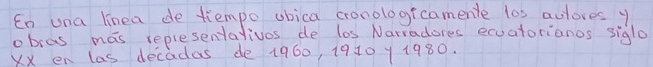 En una línea de tiempo ubica cronologicamente los autores y
obras más representativos de los Narradores ecuatorianos siglo
XX en las décadas de 1960, 1970 y 1980.